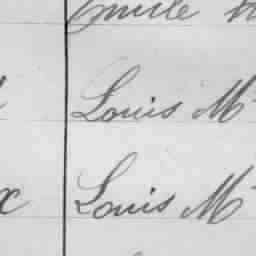 Emile
Louis M
x Louis M